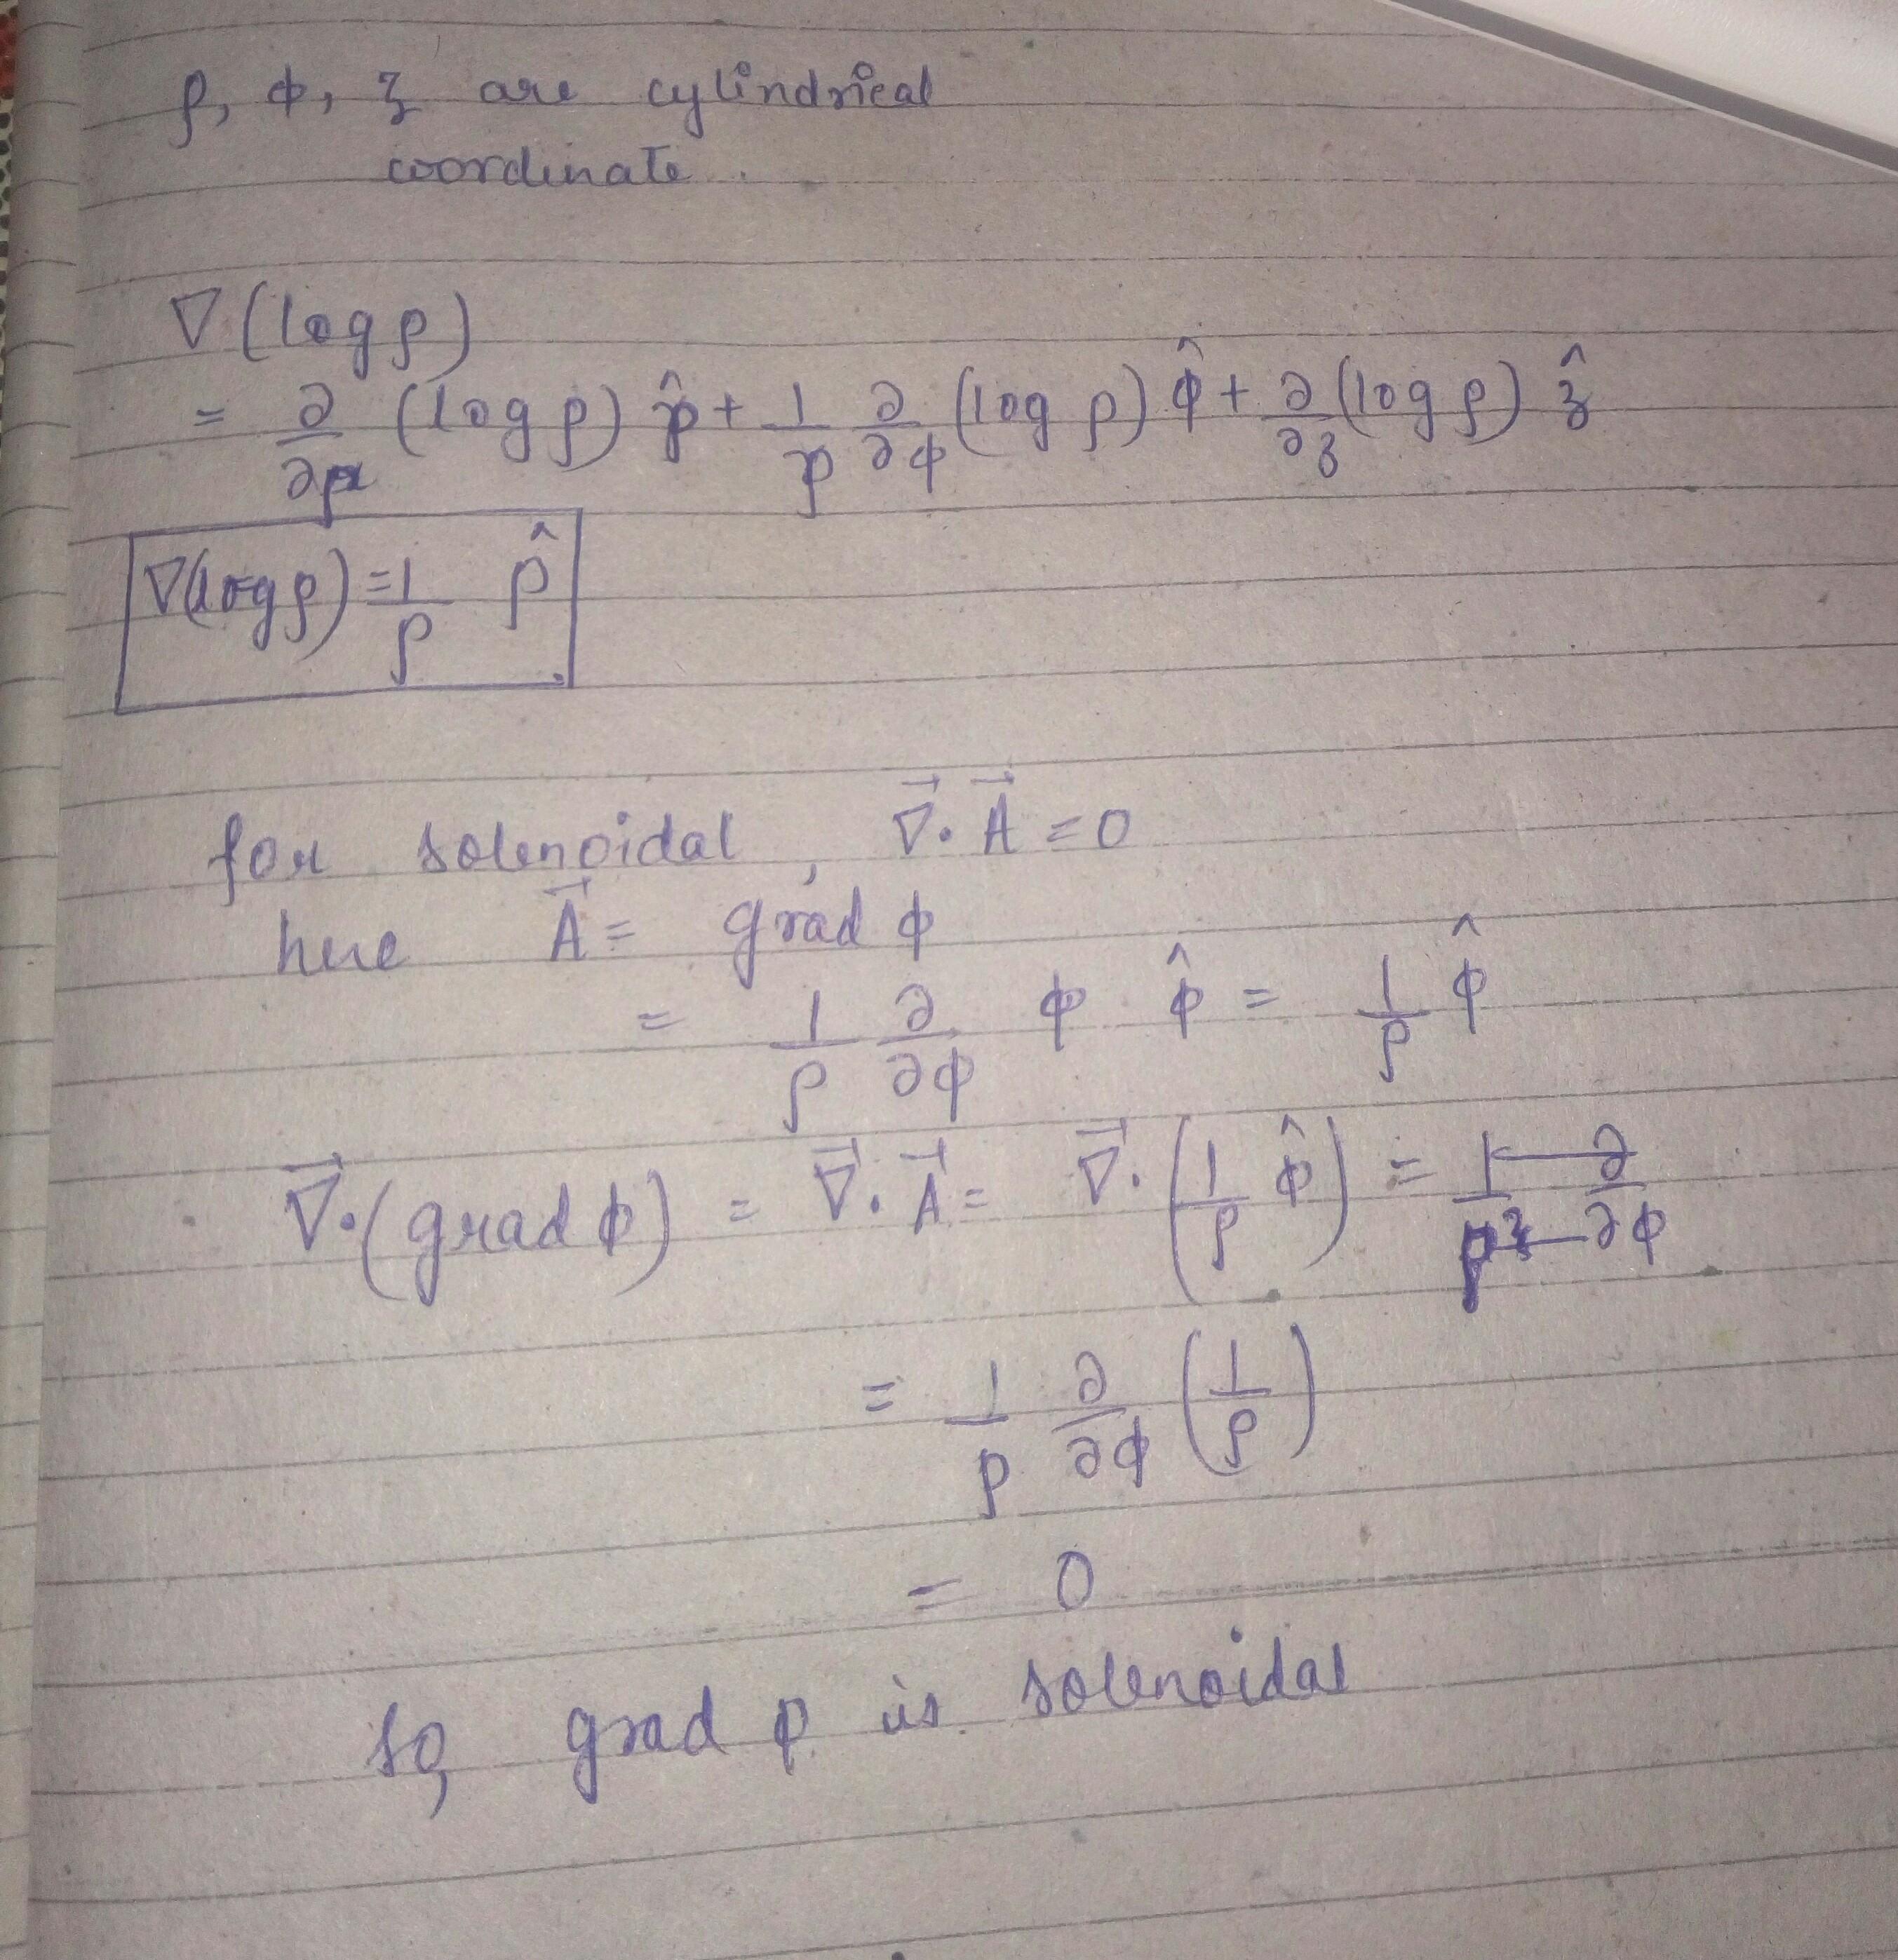 ρ, φ, z are cylindrical
coordinate.
∇(log ρ)
= ∂/∂ρ (log ρ) ρ̂ + 1/ρ ∂/∂φ (log ρ) φ̂ + ∂/∂z (log ρ) ẑ
∇(log ρ) = 1/ρ ρ̂
for solenoidal, ∇⃗·A⃗ = 0
here A⃗ = grad φ
= 1/ρ ∂/∂φ φ φ̂ = 1/ρ φ̂
∇⃗·(grad φ) = ∇⃗·A⃗ = ∇⃗·(1/ρ φ̂) =
= 1/ρ ∂/∂φ (1/ρ)
= 0
so, grad φ is solenoidal